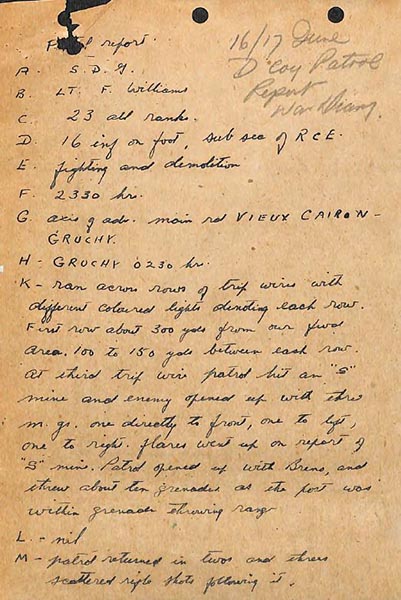 Patrol report.
16/17 June
D' Coy Patrol
Report
War Diary
A. S. D. G.
B. LT. F. Williams
C. 23 all ranks.
D. 16 inf on foot, sub sec of RCE.
E. fighting and demolition
F. 2330 hr.
G. axis of adv. main rd VIEUX CAIRON -
GRUCHY.
H - GRUCHY 0230 hr.
K - ran across rows of trip wires with
different coloured lights denoting each row.
First row about 300 yds from our fwd
area. 100 to 150 yds between each row.
At third trip wire patrol hit an "S"
mine and enemy opened up with three
m. gs. one directly to front, one to left,
one to right. flares went up on report of
"S" mine. Patrol opened up with Brens, and
threw about ten grenades as the post was
within grenade throwing range
L. - nil
M - patrol returned in twos and threes
scattered rifle shots following it.